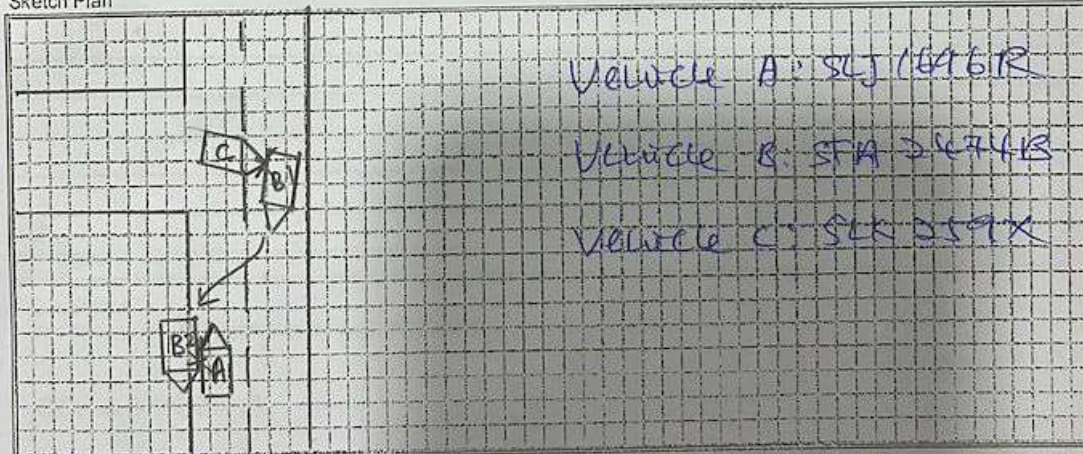 Sketch Plan
Vehicle A: SLJ1646R
Vehicle B: SFA2474B
Vehicle C: SLK259X
C
B1
B2
A